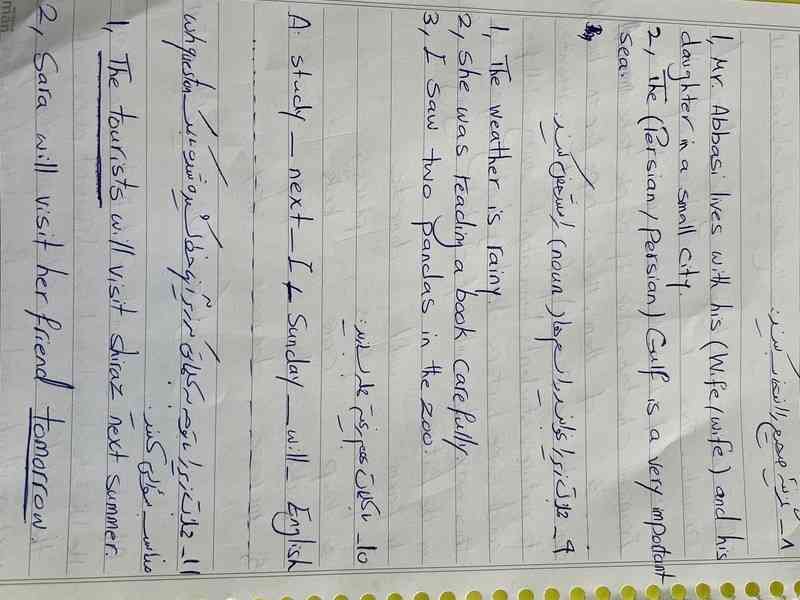 ۸_ گزینه صحیح را انتخاب کنید.
1, Mr. Abbasi lives with his (Wife/wife) and his
daughter in a small city.
2, The (Persian/persian) Gulf is a very important
sea.
۹_ جملات زیر را بخوانید و اسم ها (noun) را مشخص کنید.
1, The weather is rainy
2, she was readin a book carefully.
3, I saw two pandas in the zoo.
۱۰_ با کلمات بهم ریخته جمله بسازید.
A: study _ next _ I _ Sunday _ will _ English
۱۱_ جملات زیر را با توجه به کلمات زیر خط کشیده شده wh question
مناسب سوالی کنید.
1, The tourists will visit shiraz next summer.
2, Sara will visit her friend tomorrow.